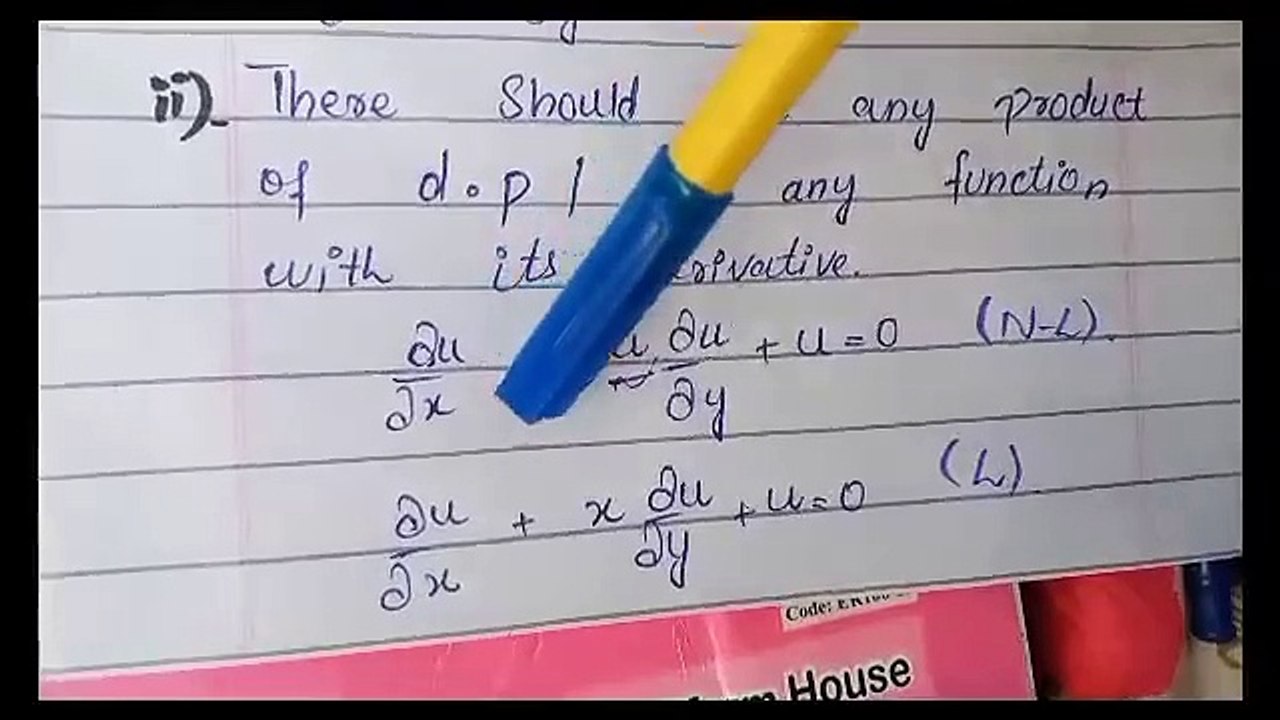 ii) There Should any product
of d.p / any function
with its derivative.
∂u/∂x u ∂u/∂y + u = 0 (N-L).
∂u/∂x + x ∂u/∂y + u = 0 (L).
Code:
House